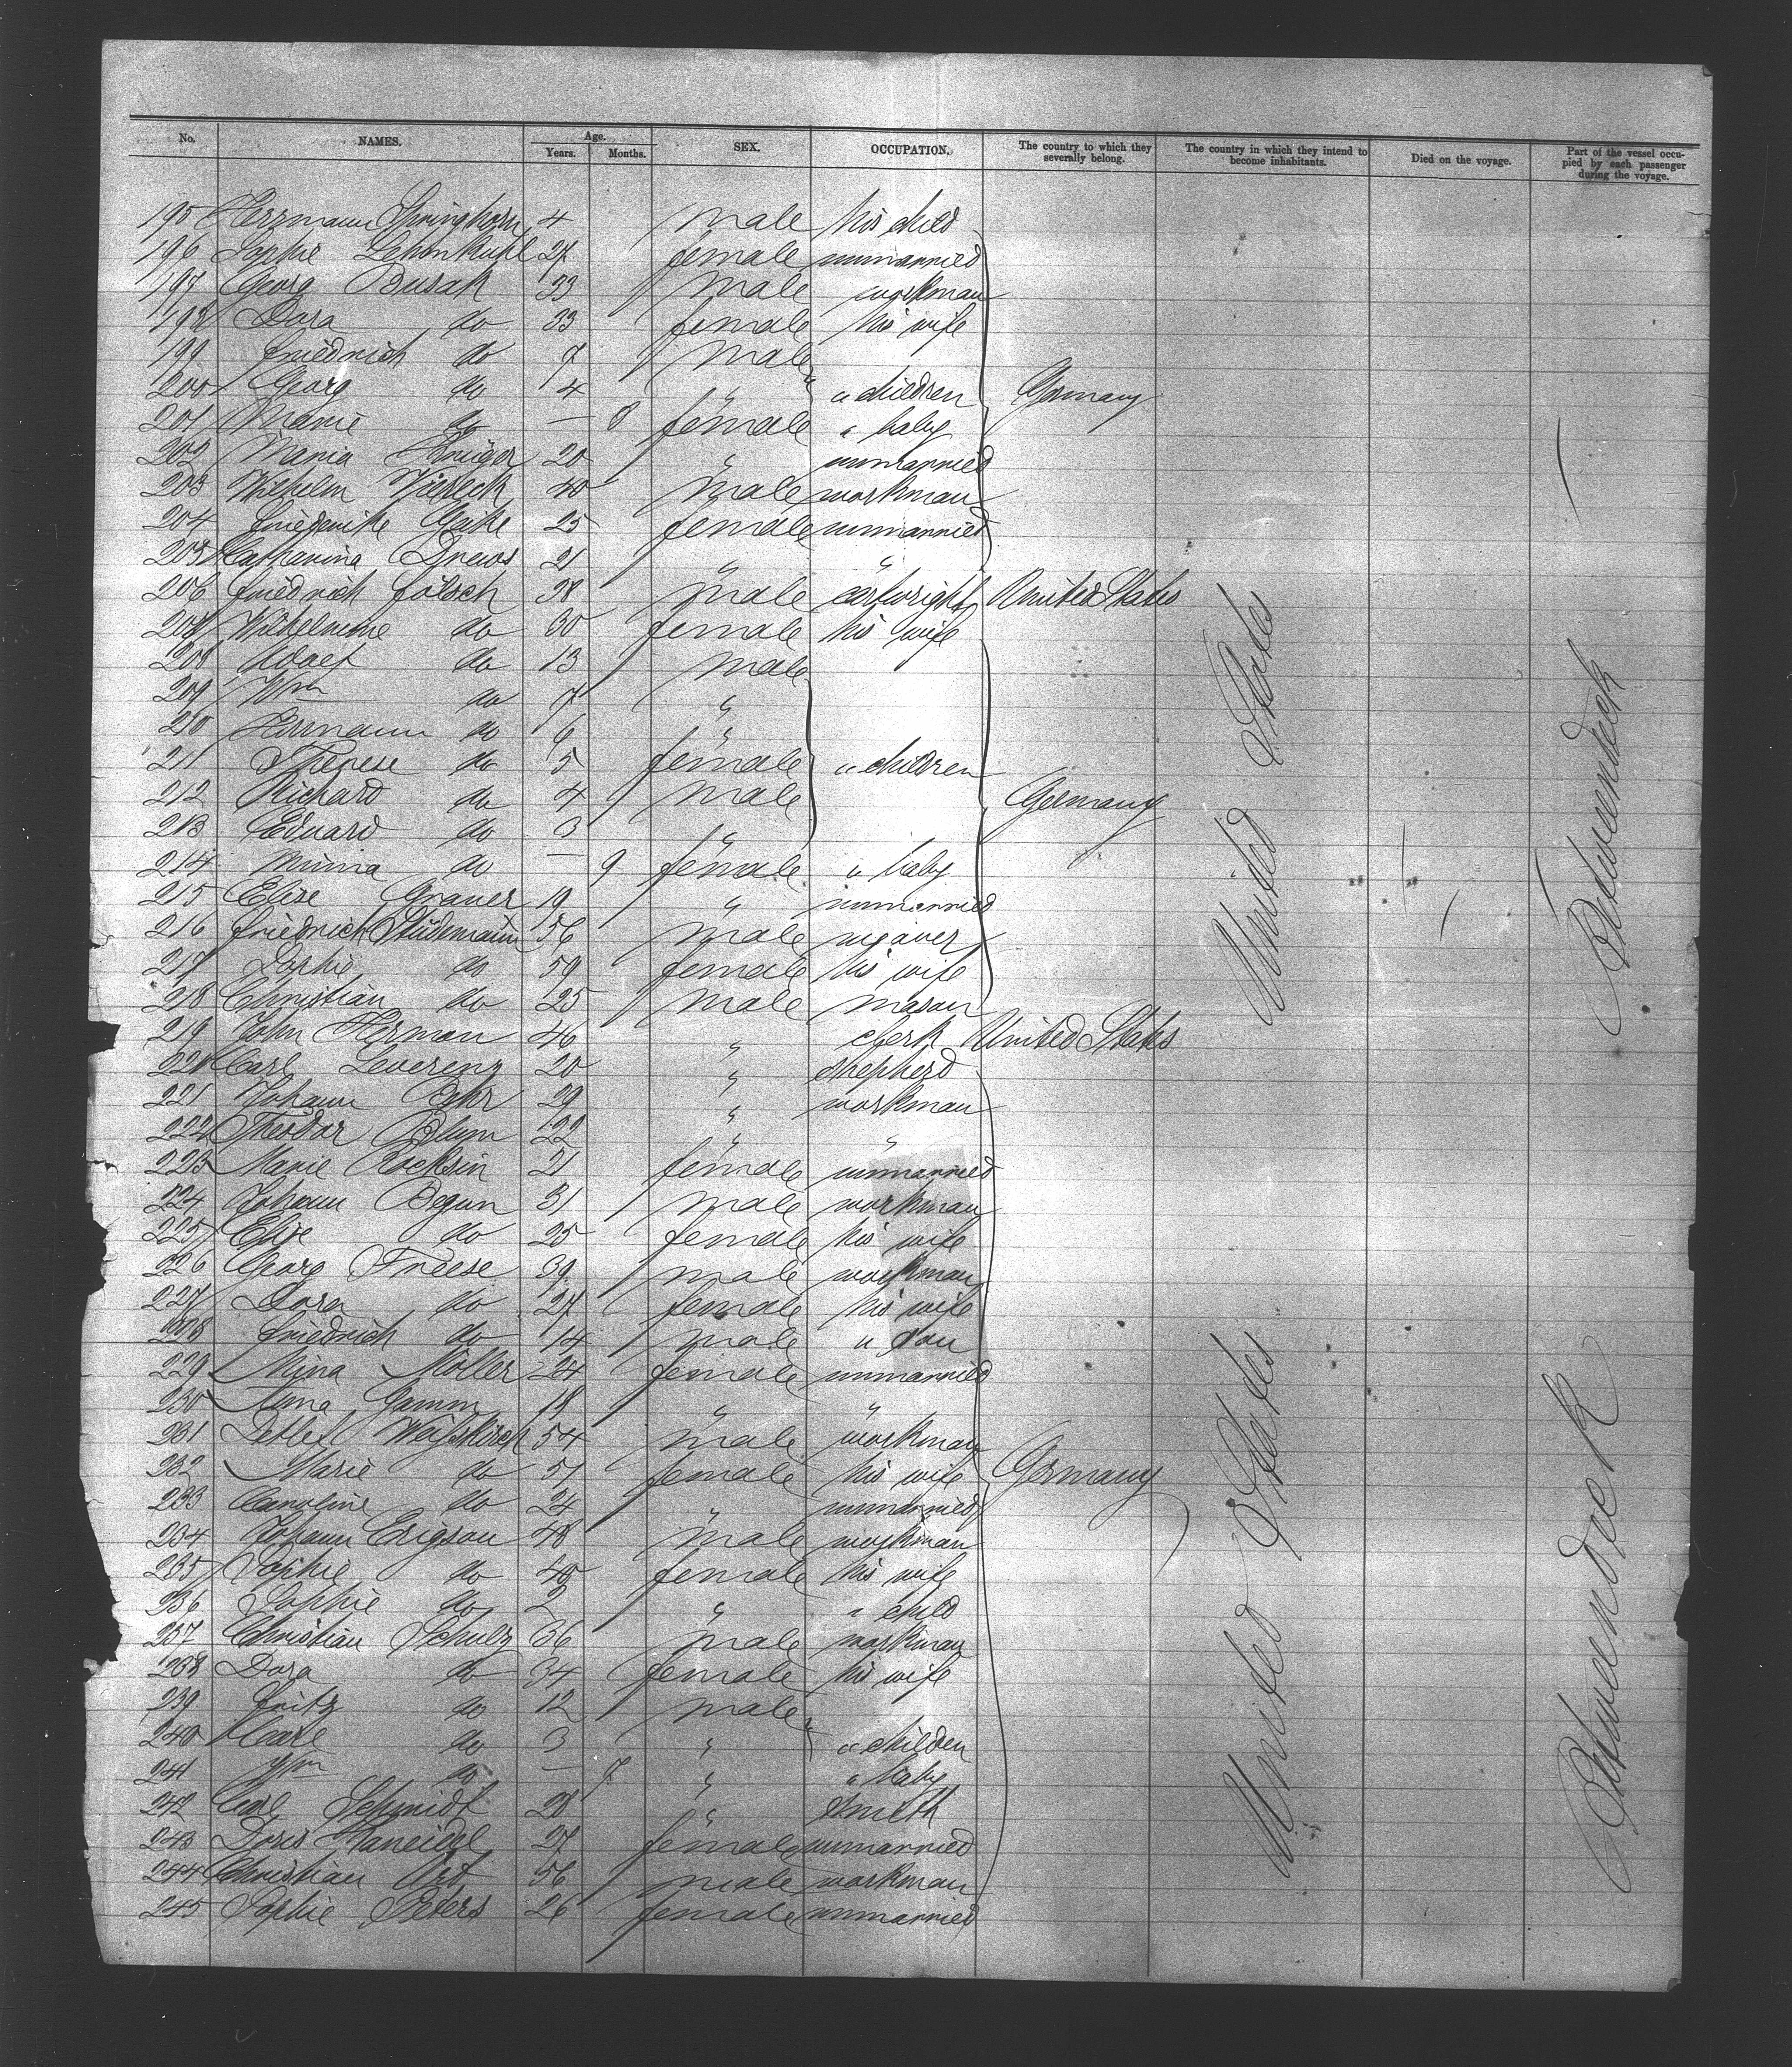 No. NAMES. Age. Years. Months. SEX. OCCUPATION. The country to which they severally belong. The country in which they intend to become inhabitants. Died on the voyage. Part of the vessel occupied by each passenger during the voyage.
195 Herrmann Springhorn 4 male his child
196 Sophie 27 female unmarried
197 Georg Busak 33 male workman
198 Dora do 33 female his wife
199 Friedrich do 7 male
200 Georg do 4 " " children Germany
201 Marie do — 8 female " baby
202 Maria Krüger 20 " unmarried
203 Wilhelm Viereck 40 male workman
204 Friederike 25 female unmarried
205 Catharina Drews 21 " "
206 Friedrich Fölsch 38 male cartwright United States
207 Wilhelmine do 30 female his wife
208 Adolf do 13 male
209 Wm do 7 "
210 Herrmann do 6 "
211 Therese do 5 female " children
212 Richard do 4 male Germany
213 Eduard do 3 "
214 Minna do — 9 female " baby
215 Elise Graner 19 " unmarried
216 Friedrich Stüdemann 56 male weaver
217 Sophie do 59 female his wife
218 Christian do 25 male mason
219 John Herman 46 " clerk United States
220 Carl Leverenz 20 " shepherd
221 Johann 29 " workman
222 Theodor Blum 22 " "
223 Marie Rocksin 21 female unmarried
224 Johann Begun 31 male workman
225 Elise do 25 female his wife
226 Georg Freese 39 male workman
227 Dora do 27 female his wife
228 Friedrich do 14 male " son
229 Mina Möller 24 female unmarried
230 Anna Gamm 18 " "
231 Detlef 54 male workman
232 Marie do 51 female his wife Germany
233 Caroline do 24 " unmarried
234 Johann Erigson 48 male workman
235 Sophie do 40 female his wife
236 Sophie do 2 " " child
237 Christian Schulz 36 male workman
238 Dora do 34 female his wife
239 Fritz do 12 male
240 Carl do 3 " " children
241 Wm do — 7 " " baby
242 Carl Schmidt 28 " smith
243 Doris 27 female unmarried
244 Christian 56 male workman
245 Sophie Peters 26 female unmarried
United States
United States
Betweendeck
Betweendeck